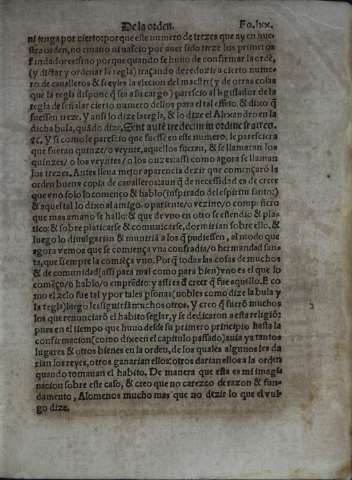 De la orden. Fo. lxx.
ni tenga por cierto: porque este numero de trezes que ay en nue-
stra orden, no emano ni nascio por auer sido treze los primeros
fundadores: sino porque quando se huuo de confirmar la orde,
(y dictar y ordenar la regla) traçando de reduzir a cierto nume-
ro de caualleros & freyles la eleccion del maestre (y de otras cosas
que la regla dispone q̃ sea a su cargo) parescio al legislador de la
regla de señalar cierto numero dellos para el tal effecto, & dixo q̃
fuessen treze. Y ansi lo dize la regla, & lo dize el Alexandro en la
dicha bula, quãdo dize. Sint autẽ tredecim in ordine fratres.
&c. Y si como le parescio que fuesse en este numero, le paresciera
que fueran quinze/ o veynte, aquellos fueran, & se llamaran los
quinzes/ o los veyntes/ o los onze: assi como agora se llaman
los trezes. Antes lleua mejor aparencia dezir que començaro la
orden buena copia de caualleros: aun q̃ de necessidad es de creer
que vno solo lo començo & hablo (inspirado del spiritu sancto)
& aquel tal lo dixo al amigo. o pariente/ o vezino/ o compañero
que mas amano se hallo: & que de vno en otro se estendio & pla-
tico: & sobre platicarse & comunicarse, dormirian sobre ello, &
luego lo diuulgarian & muñiria a los q̃ pudiessen, al modo que
agora vemos que se comiença vna confradia/ o hermandad san-
ta, que siempre la comiẽça vno. Porq̃ todas las cosas de muchos
& de comunidad (assi para mal como para bien) vno es el que lo
comẽço/ o hablo/ o emprẽdio: y assi es d̃ creer q̃ fue aquello. E co
mo el zelo fue tal y por tales p̃sonas (nobles como dize la bula y
la regla) luego les siguirian muchos otros. Y creo q̃ fuerõ muchos
los que renunciarõ el habito seglar, y se dedicaron a esta religiõ:
pues en el tiempo que huuo desde su primero principio hasta la
confirmacion (como dixe en el capitulo passado) auia ya tantos
lugares & otros bienes en la orden, de los quales algunos les da
rian los reyes, otros ganarian ellos: otros darian ellos a la orden
quando tomauan el habito. De manera que esta es mi imagi
nacion sobre este caso, & creo que no carezco de razon & fun-
damento, Alomenos mucho mas que no dezir lo que el vul-
go dize.